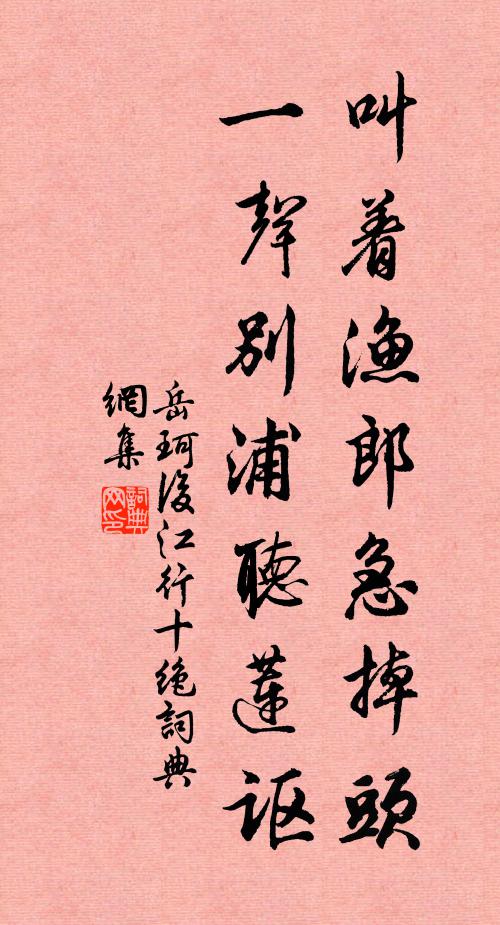 叫着渔郎急掉頭
一聲别浦聽蓮讴
岳珂後江行十绝詞典
網集
詞典
网印